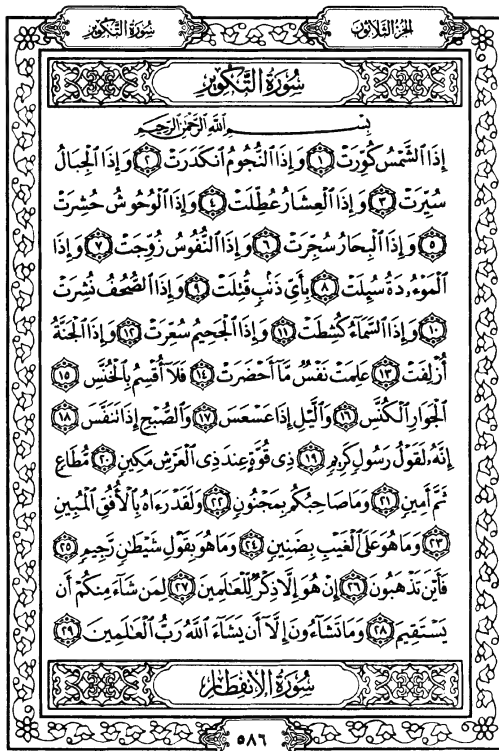 سُورَةُ التَّكْوِيرِ
الجزءُ الثَّلَاثُونَ
سُورَةُ التَّكْوِيرِ
بِسْمِ اللَّهِ الرَّحْمَٰنِ الرَّحِيمِ
إِذَا ٱلشَّمْسُ كُوِّرَتْ ١ وَإِذَا ٱلنُّجُومُ ٱنكَدَرَتْ ٢ وَإِذَا ٱلْجِبَالُ
سُيِّرَتْ ٣ وَإِذَا ٱلْعِشَارُ عُطِّلَتْ ٤ وَإِذَا ٱلْوُحُوشُ حُشِرَتْ
٥ وَإِذَا ٱلْبِحَارُ سُجِّرَتْ ٦ وَإِذَا ٱلنُّفُوسُ زُوِّجَتْ ٧ وَإِذَا
ٱلْمَوْءُۥدَةُ سُئِلَتْ ٨ بِأَىِّ ذَنۢبٍ قُتِلَتْ ٩ وَإِذَا ٱلصُّحُفُ نُشِرَتْ
١٠ وَإِذَا ٱلسَّمَآءُ كُشِطَتْ ١١ وَإِذَا ٱلْجَحِيمُ سُعِّرَتْ ١٢ وَإِذَا ٱلْجَنَّةُ
أُزْلِفَتْ ١٣ عَلِمَتْ نَفْسٌ مَّآ أَحْضَرَتْ ١٤ فَلَآ أُقْسِمُ بِٱلْخُنَّسِ ١٥
ٱلْجَوَارِ ٱلْكُنَّسِ ١٦ وَٱلَّيْلِ إِذَا عَسْعَسَ ١٧ وَٱلصُّبْحِ إِذَا تَنَفَّسَ ١٨
إِنَّهُۥ لَقَوْلُ رَسُولٍ كَرِيمٍ ١٩ ذِى قُوَّةٍ عِندَ ذِى ٱلْعَرْشِ مَكِينٍ ٢٠ مُّطَاعٍ
ثَمَّ أَمِينٍ ٢١ وَمَا صَاحِبُكُم بِمَجْنُونٍ ٢٢ وَلَقَدْ رَءَاهُ بِٱلْأُفُقِ ٱلْمُبِينِ
٢٣ وَمَا هُوَ عَلَى ٱلْغَيْبِ بِضَنِينٍ ٢٤ وَمَا هُوَ بِقَوْلِ شَيْطَٰنٍ رَّجِيمٍ ٢٥
فَأَيْنَ تَذْهَبُونَ ٢٦ إِنْ هُوَ إِلَّا ذِكْرٌ لِّلْعَٰلَمِينَ ٢٧ لِمَن شَآءَ مِنكُمْ أَن
يَسْتَقِيمَ ٢٨ وَمَا تَشَآءُونَ إِلَّآ أَن يَشَآءَ ٱللَّهُ رَبُّ ٱلْعَٰلَمِينَ ٢٩
سُورَةُ الِانفِطَارِ
٥٨٦